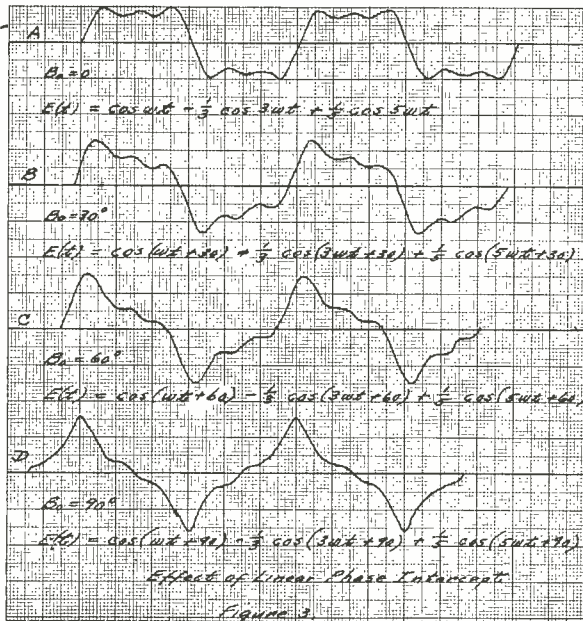 A
B₀=0
E(t) = cos wt - 1/3 cos 3wt + 1/5 cos 5wt
B
B₀=30°
E(t) = cos(wt+30) + 1/3 cos(3wt+30) + 1/5 cos(5wt+30)
C
B₀=60°
E(t) = cos(wt+60) - 1/3 cos(3wt+60) + 1/5 cos(5wt+60)
D
B₀=90°
E(t) = cos(wt+90) - 1/3 cos(3wt+90) + 1/5 cos(5wt+90)
Effect of Linear Phase Intercept
Figure 3.